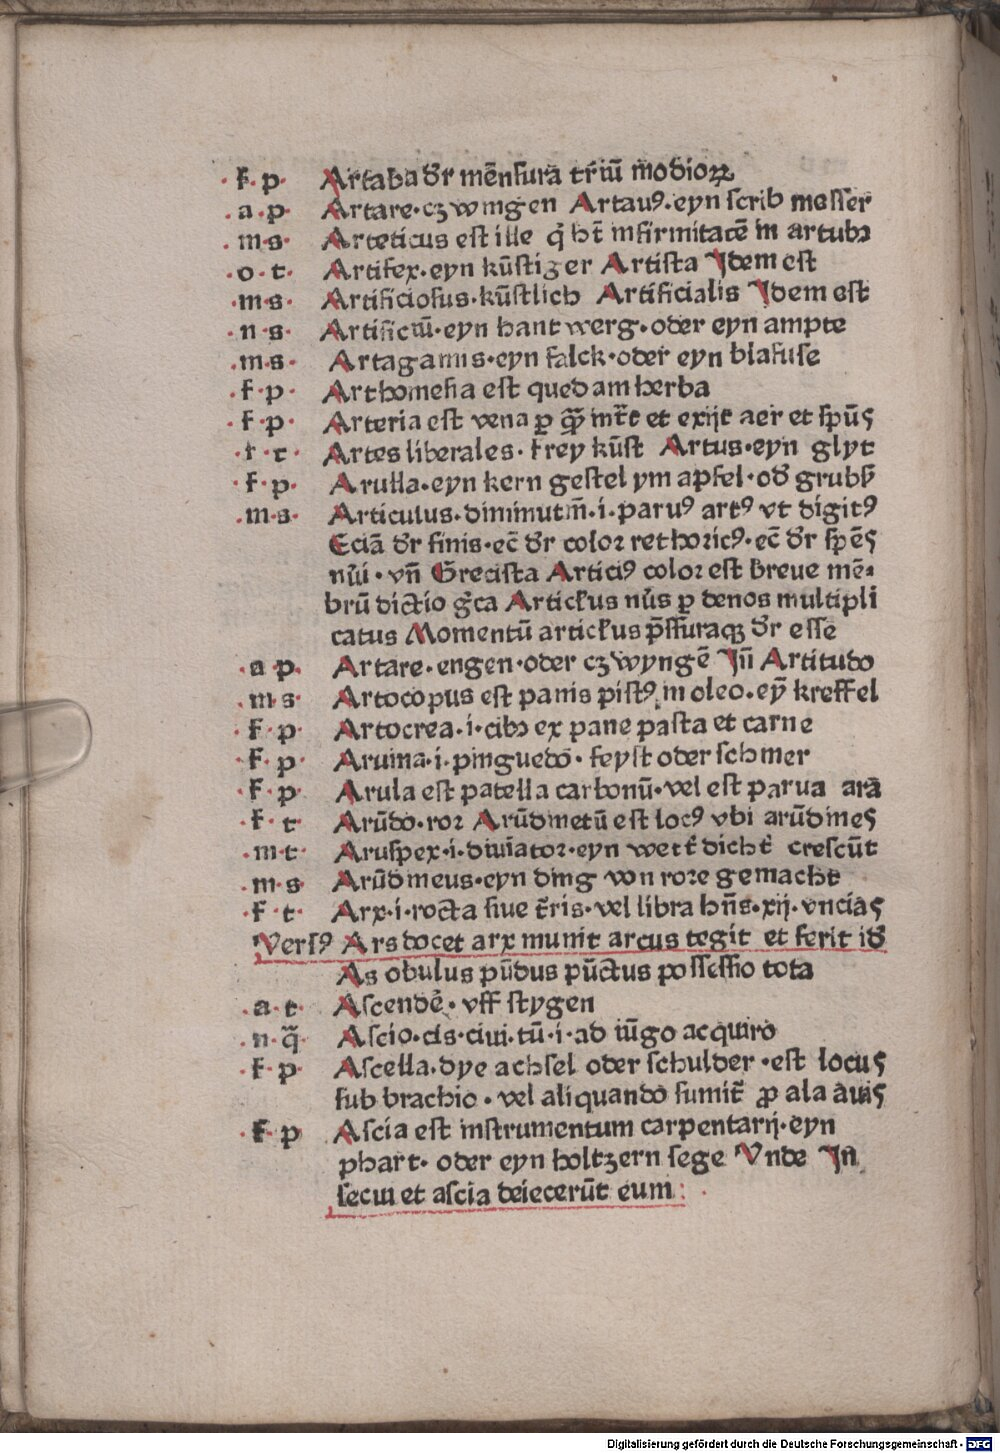 .f.p. Artaba dr̄ mēsura triū modioꝝ
.a.p. Artare.czwingen Artauꝰ.eyn scrib messer
.m.s. Arteticus est ille q̇ hꝫ infirmitatē in artubꝫ
.o.t. Artifex.eyn kūstiger Artista Idem est
.m.s. Artificiosus.kūstlich Artificialis Idem est
.n.s. Artificiū.eyn hantwerg.oder eyn ampte
.m.s. Artaganus.eyn falck.oder eyn blafuse
.f.p. Arthomesia est quedam herba
.f.p. Arteria est vena ꝑ quā intͬt et exijt aer et spūs
.f.t. Artes liberales.frey kūst Artus.eyn glyt
.f.p. Arulla.eyn kern gestel ym apfel.od̄ grubß
.m.s. Articulus.diminutiū.i.paruꝰ artꝰ vt digitꝰ
Eciā dr̄ finis.ec̄ dr̄ color rethoricꝰ.ec̄ dr̄ spēs
nūi.vn̄ Grecista Articꝰ color est breue mē-
brū dictio gͥca Artickus nūs ꝑ denos multipli
catus Momentū artickus p̄ssuraqꝫ dr̄ esse
.a.p. Artare.engen.oder czwyngē In̄ Artitudo
.m.s. Artocopus est panis pistꝰ in oleo.eȳ kreffel
.f.p. Artocrea.i.cibꝫ ex pane pasta et carne
.f.p. Aruina.i.pinguedo.feyst oder schmer
.f.p. Arula est patella carbonū.vel est parua arā
.f.t. Arūdo.ror Arūdinetū est locꝰ vbi arūdines
.m.t. Aruspex.i.diuiātor.eyn wett̄ dicht̄ crescūt
.m.s. Arūdineus.eyn ding von rore gemacht
.f.t. Arx.i.rocta siue t̄ris.vel libra hn̄s.xij.vncias
Versꝰ Ars docet arx munit arcus tegit et ferit id̄
As obulus pūdus pūctus possessio tota
.a.t. Ascendē.vff stygen
.n.q̄. Ascio.cis.ciui.tū.i.ad iūgo acquiro
.f.p. Ascella.dye achsel oder schulder.est locus
sub brachio.vel aliquando sumit̄ ꝓ ala auis
.f.p Ascia est instrumentum carpentarij.eyn
phart.oder eyn holtzern sege Vnde In̄
secui et ascia deiecerūt eum:.
Digitalisierung gefördert durch die Deutsche Forschungsgemeinschaft - DFG